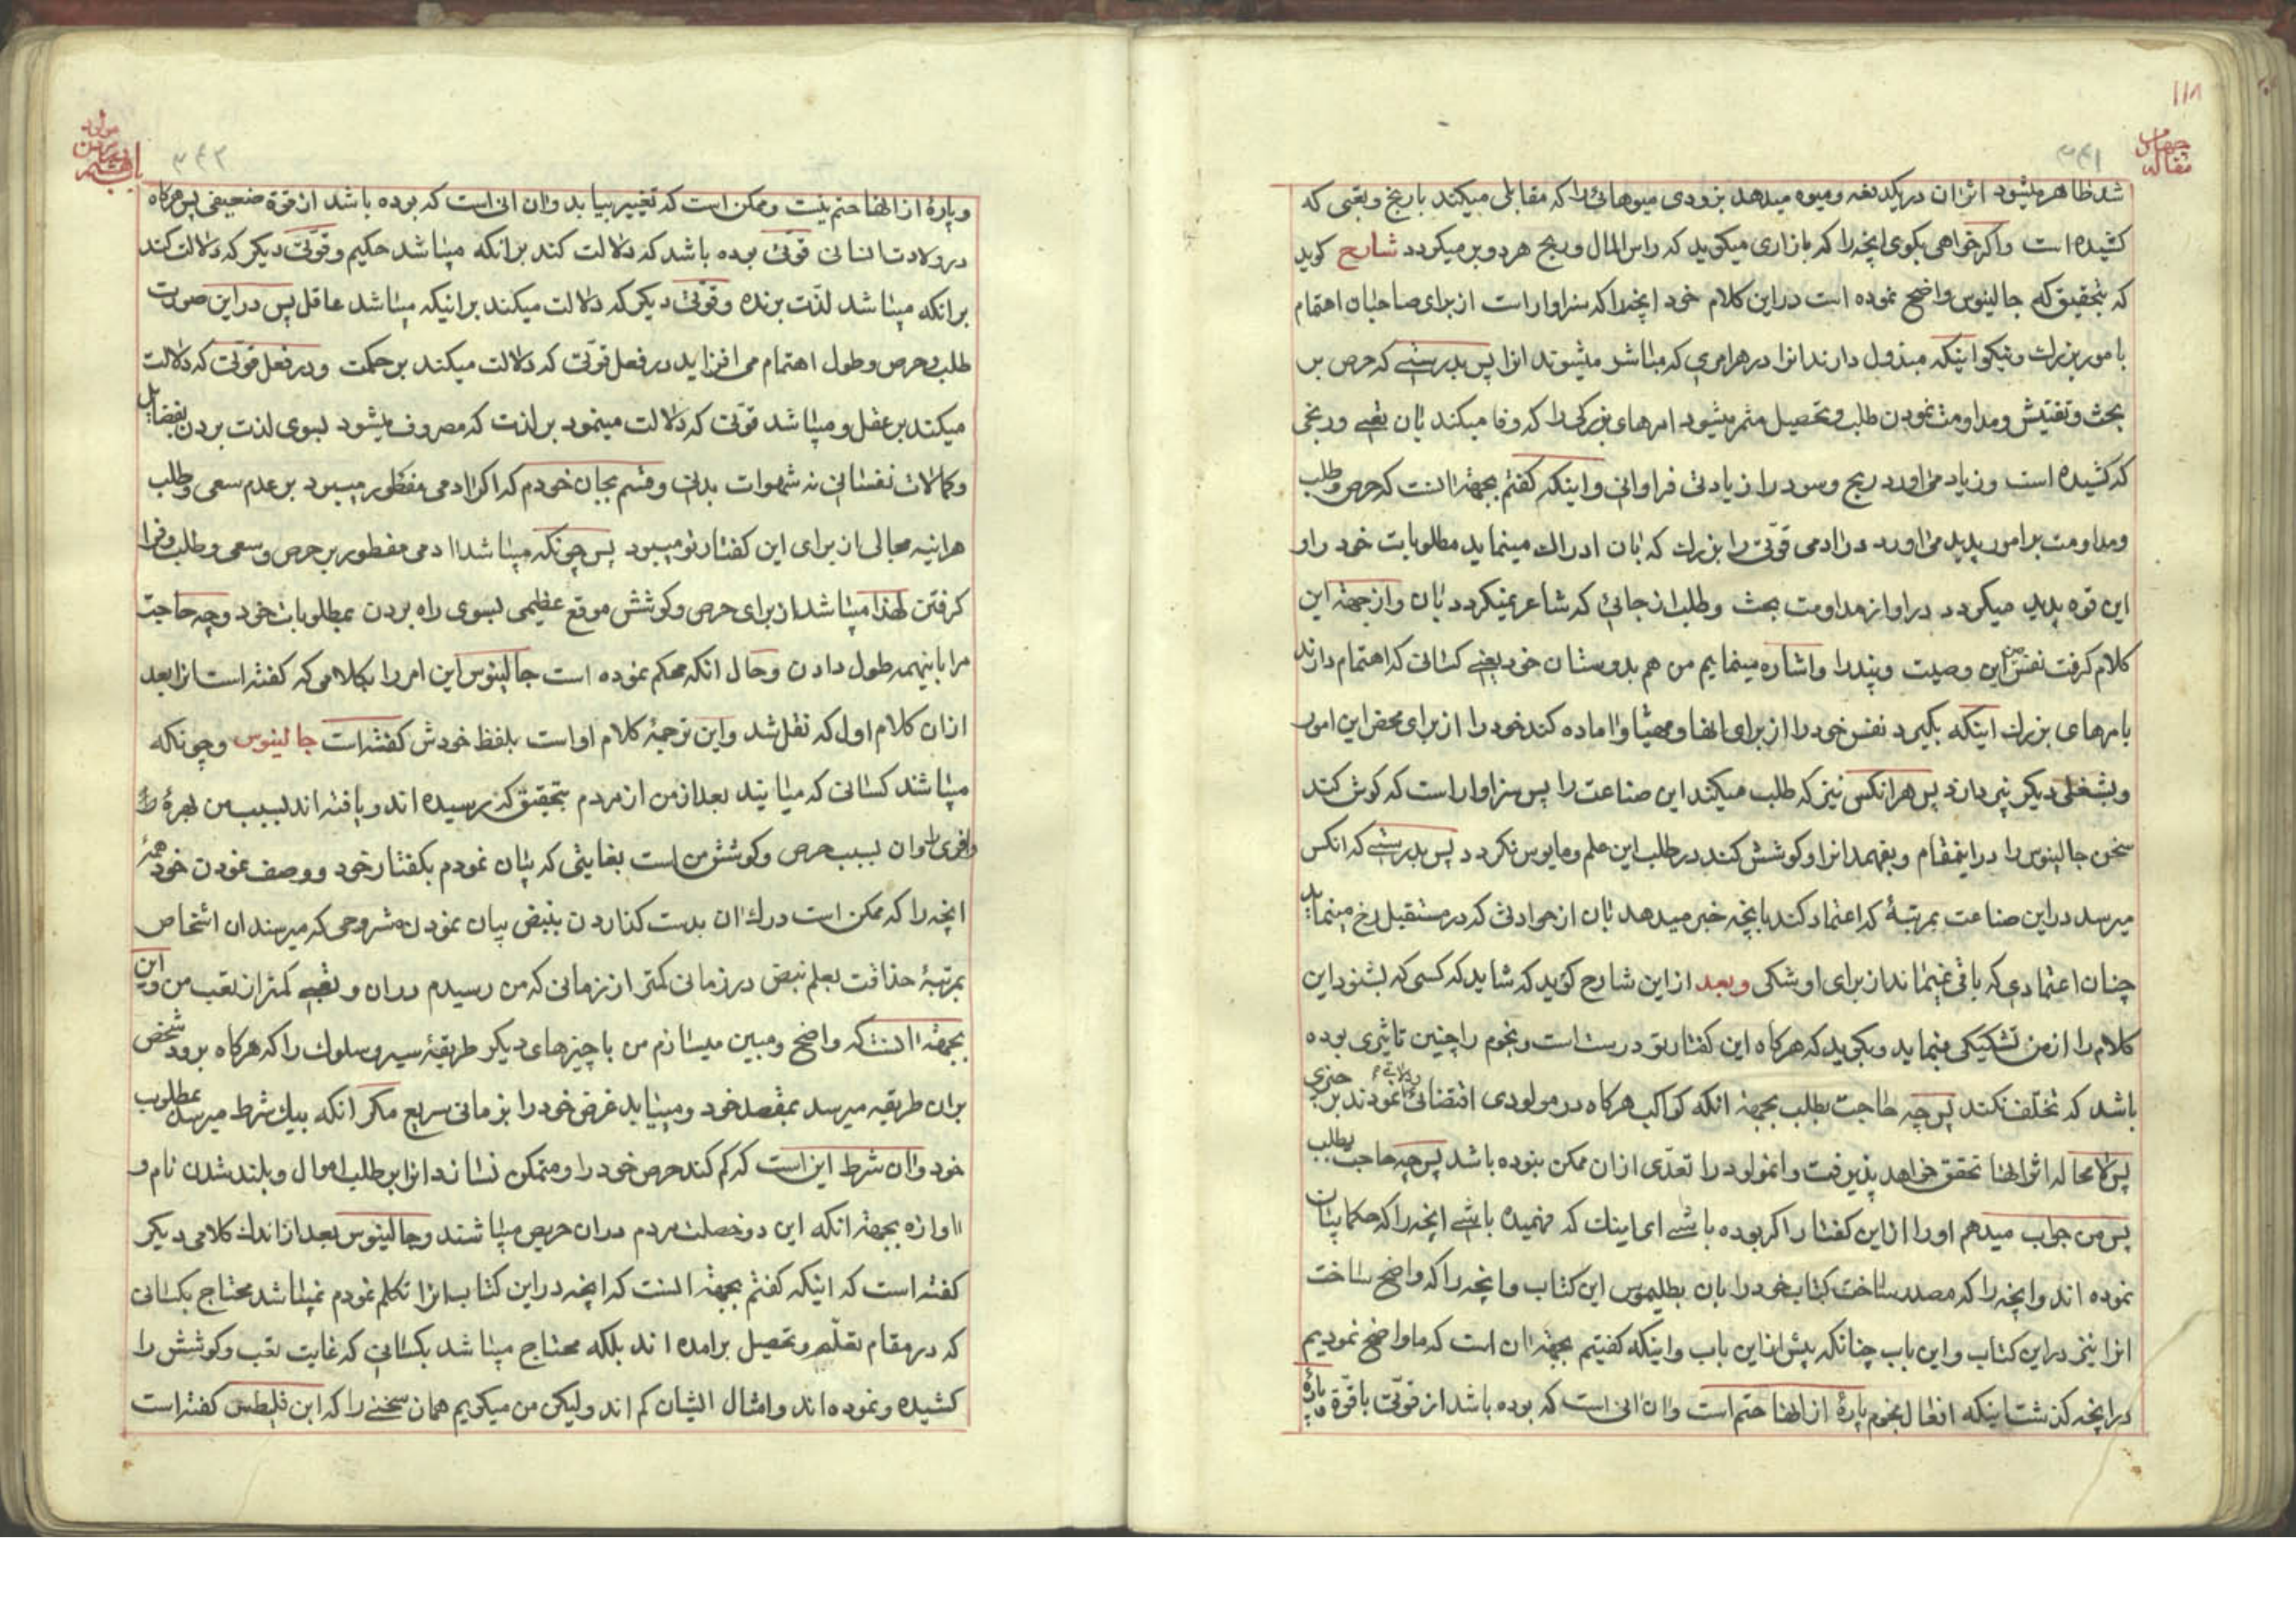 ۱۱۸
مقاله چهارم
۳۴۱
شد ظاهر میشود اثر ان در یکدفعه و میوه میدهد بزودی میوهائی را که مقابلی میکند با رنج و تعبی که
کشیده است واکر خواهی بکوی انچه را که بازاری میکوید که راس المال و ربح هر دو بر میکردد شارح کوید
که بتحقیق که جالینوس واضح نموده است در این کلام خود انچه را که سزاوار است از برای صاحبان اهتمام
بامور بزرک و نیکو اینکه مبذول دارند انرا در هر امری که مباشر میشوند انرا پس بدرستی که حرص بر
بحث و تفتیش و مداومت نمودن طلب و تحصیل مثمر میشود امرهای بزرکی را که وفا میکند بان تعبی و رنجی
که کشیده است و زیاد می اورد ربح و سود را زیادتی فراوانی و اینکه کفتم بجهة انست که حرص و طلب
و مداومت بر امور پدید می اورد در ادمی قوتی را بزرک که بان ادراک مینماید مطلوبات خود را و
این قوه پدید میکردد در او از مداومت بحث و طلب از جائی که شاعر نمیکردد بان و از جهة این
کلام کرفت نفس من این وصیت و پند را و اشاره مینمایم من هم بدوستان خود یعنی کسانی که اهتمام دارند
بامرهای بزرک اینکه بکیرد نفس خود را از برای انها و مهیا و اماده کند خود را از برای محض این امور
و بشغلی دیکر نپردازد پس هر انکس نیز که طلب میکند این صناعت را پس سزاوار است که کوش کند
سخن جالینوس را در اینمقام و بفهمد انرا و کوشش کند در طلب این علم و مایوس نکردد پس بدرستی که انکس
میرسد در این صناعت بمرتبهٔ که اعتماد کند بانچه خبر میدهد بان از حوادثی که در مستقبل رخ مینماید
چنان اعتمادی که باقی نمیماند از برای او شکی و بعد از این شارح کوید که شاید که کسی که بشنود این
کلام را از من تشکیکی مینماید و بکوید که هرکاه این کفتار تو درست است و نجوم را چنین تاثیری بوده
باشد که تخلف نکند پس چه حاجت بطلب بجهة انکه کواکب هرکاه در مولودی اقتضائی نمودند بر چیزی
پس لا محاله اثر انها تحقق خواهد پذیرفت و انمولود را تعدی از ان ممکن نبوده باشد پس چه حاجت بطلب
پس من جواب میدهم او را از این کفتار اکر بوده باشی ای اینک که فهمیده باشی انچه را که حکما بیان
نموده اند و انچه را که مصدر ساخت کتاب خود را بان بطلیموس این کتاب و انچه را که واضح ساخت
انرا نیز در این کتاب و این باب چنانکه پیش از این باب و اینکه کفتیم بجهة ان است که ما واضح نمودیم
در انچه کذشت اینکه افعال نجوم پارهٔ از انها حتم است و ان انی است که بوده باشد از قوتی با قوة و پارهٔ
۳۴۲
و پارهٔ از انها حتم نیست و ممکن است که تغییر بیابد و ان انی است که بوده باشد از قوة ضعیفی پس هرکاه
در ولادت انسانی قوتی بوده باشد که دلالت کند بر انکه میباشد حکیم و قوتی دیکر که دلالت کند
بر انکه میباشد لذت برنده و قوتی دیکر که دلالت میکند بر اینکه میباشد عاقل پس در این صورت
طلب و حرص و طول اهتمام می افزاید در فعل قوتی که دلالت میکند بر حکمت و در فعل قوتی که دلالت
میکند بر عقل و میباشد قوتی که دلالت مینمود بر لذت که مصروف میشود بسوی لذت بردن بفضایل
و کمالات نفسانی نه شهوات بدنی و قسم بجان خودم که اکر ادمی مفطور میبود بر عدم سعی و طلب
هر اینه مجالی از برای این کفتار تو میبود پس چونکه میباشد ادمی مفطور بر حرص و سعی و طلب و فرا
کرفتن لهذا میباشد از برای حرص و کوشش موقع عظیمی بسوی راه بردن بمطلوبات خود و چه حاجت
مرا باینهمه طول دادن و حال انکه محکم نموده است جالینوس این امر را بکلامی که کفته است انرا بعد
از ان کلام اول که نقل شد و این ترجمهٔ کلام او است بلفظ خودش کفته است جالینوس و چونکه
میباشند کسانی که میایند بعد از من از مردم بتحقیق که رسیده اند و یافته اند بسبب من بهرهٔ را
واقوی ان بسبب حرص و کوشش من است بغایتی که بیان نمودم بکفتار خود و وصف نمودن خود همهٔ
انچه را که ممکن است درک ان بدست کذاردن بنبض بیان نمودن مشروحی که میرسند ان اشخاص
بمرتبهٔ حذاقت بعلم نبض در زمانی کمتر از زمانی که من رسیدم در ان و تعبی کمتر از تعب من و این
بجهة انست که واضح و مبین میسازم من با چیزهای دیکر طریقهٔ سیر و سلوک را که هرکاه برود شخص
بران طریقه میرسد بمقصد خود و میبابد غرض خود را بزمانی سریع مکر انکه بیک شرط میرسد بمطلوب
خود و ان شرط این است که کم کند حرص خود را و متمکن نسازد انرا بر طلب اموال و بلند شدن نام و
اوازه بجهة انکه این دو خصلت مردم در ان حریص میباشند و جالینوس بعد از اندک کلامی دیکر
کفته است که اینکه کفتم بجهة انست که انچه در این کتاب انرا تکلم نمودم نمیباشد محتاج بکسانی
که در مقام تعلم و تحصیل برامده اند بلکه محتاج میباشد بکسانی که غایت تعب و کوشش را
کشیده و نموده اند و امثال ایشان کم اند و لیکن من میکویم همان سخنی را که ابن فلیطس کفته است